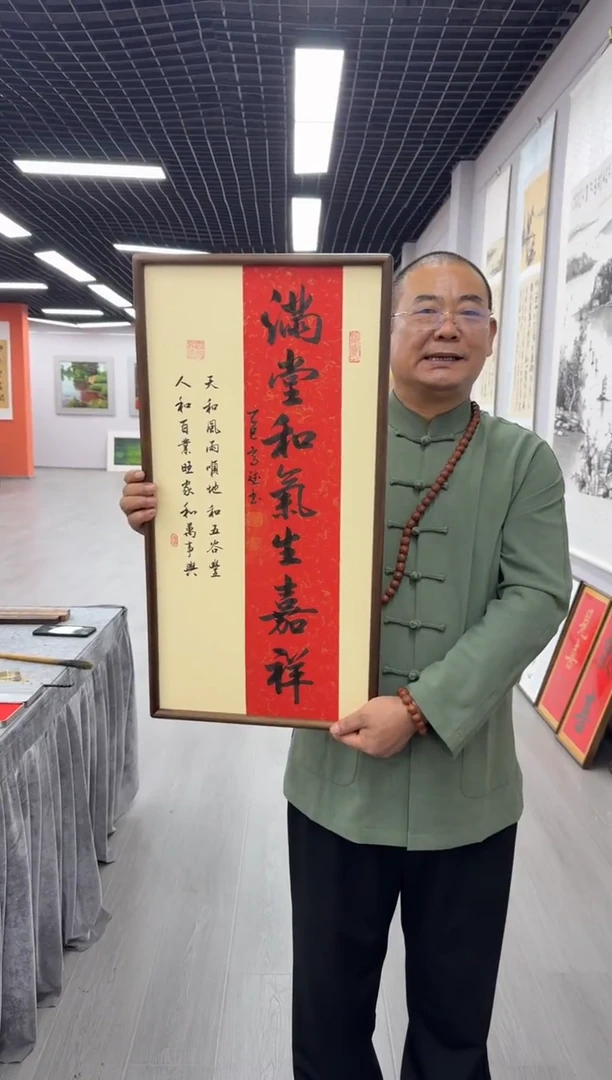 满堂和氣生嘉祥
天和風雨順地和五谷豐
人和百業旺家和萬事興